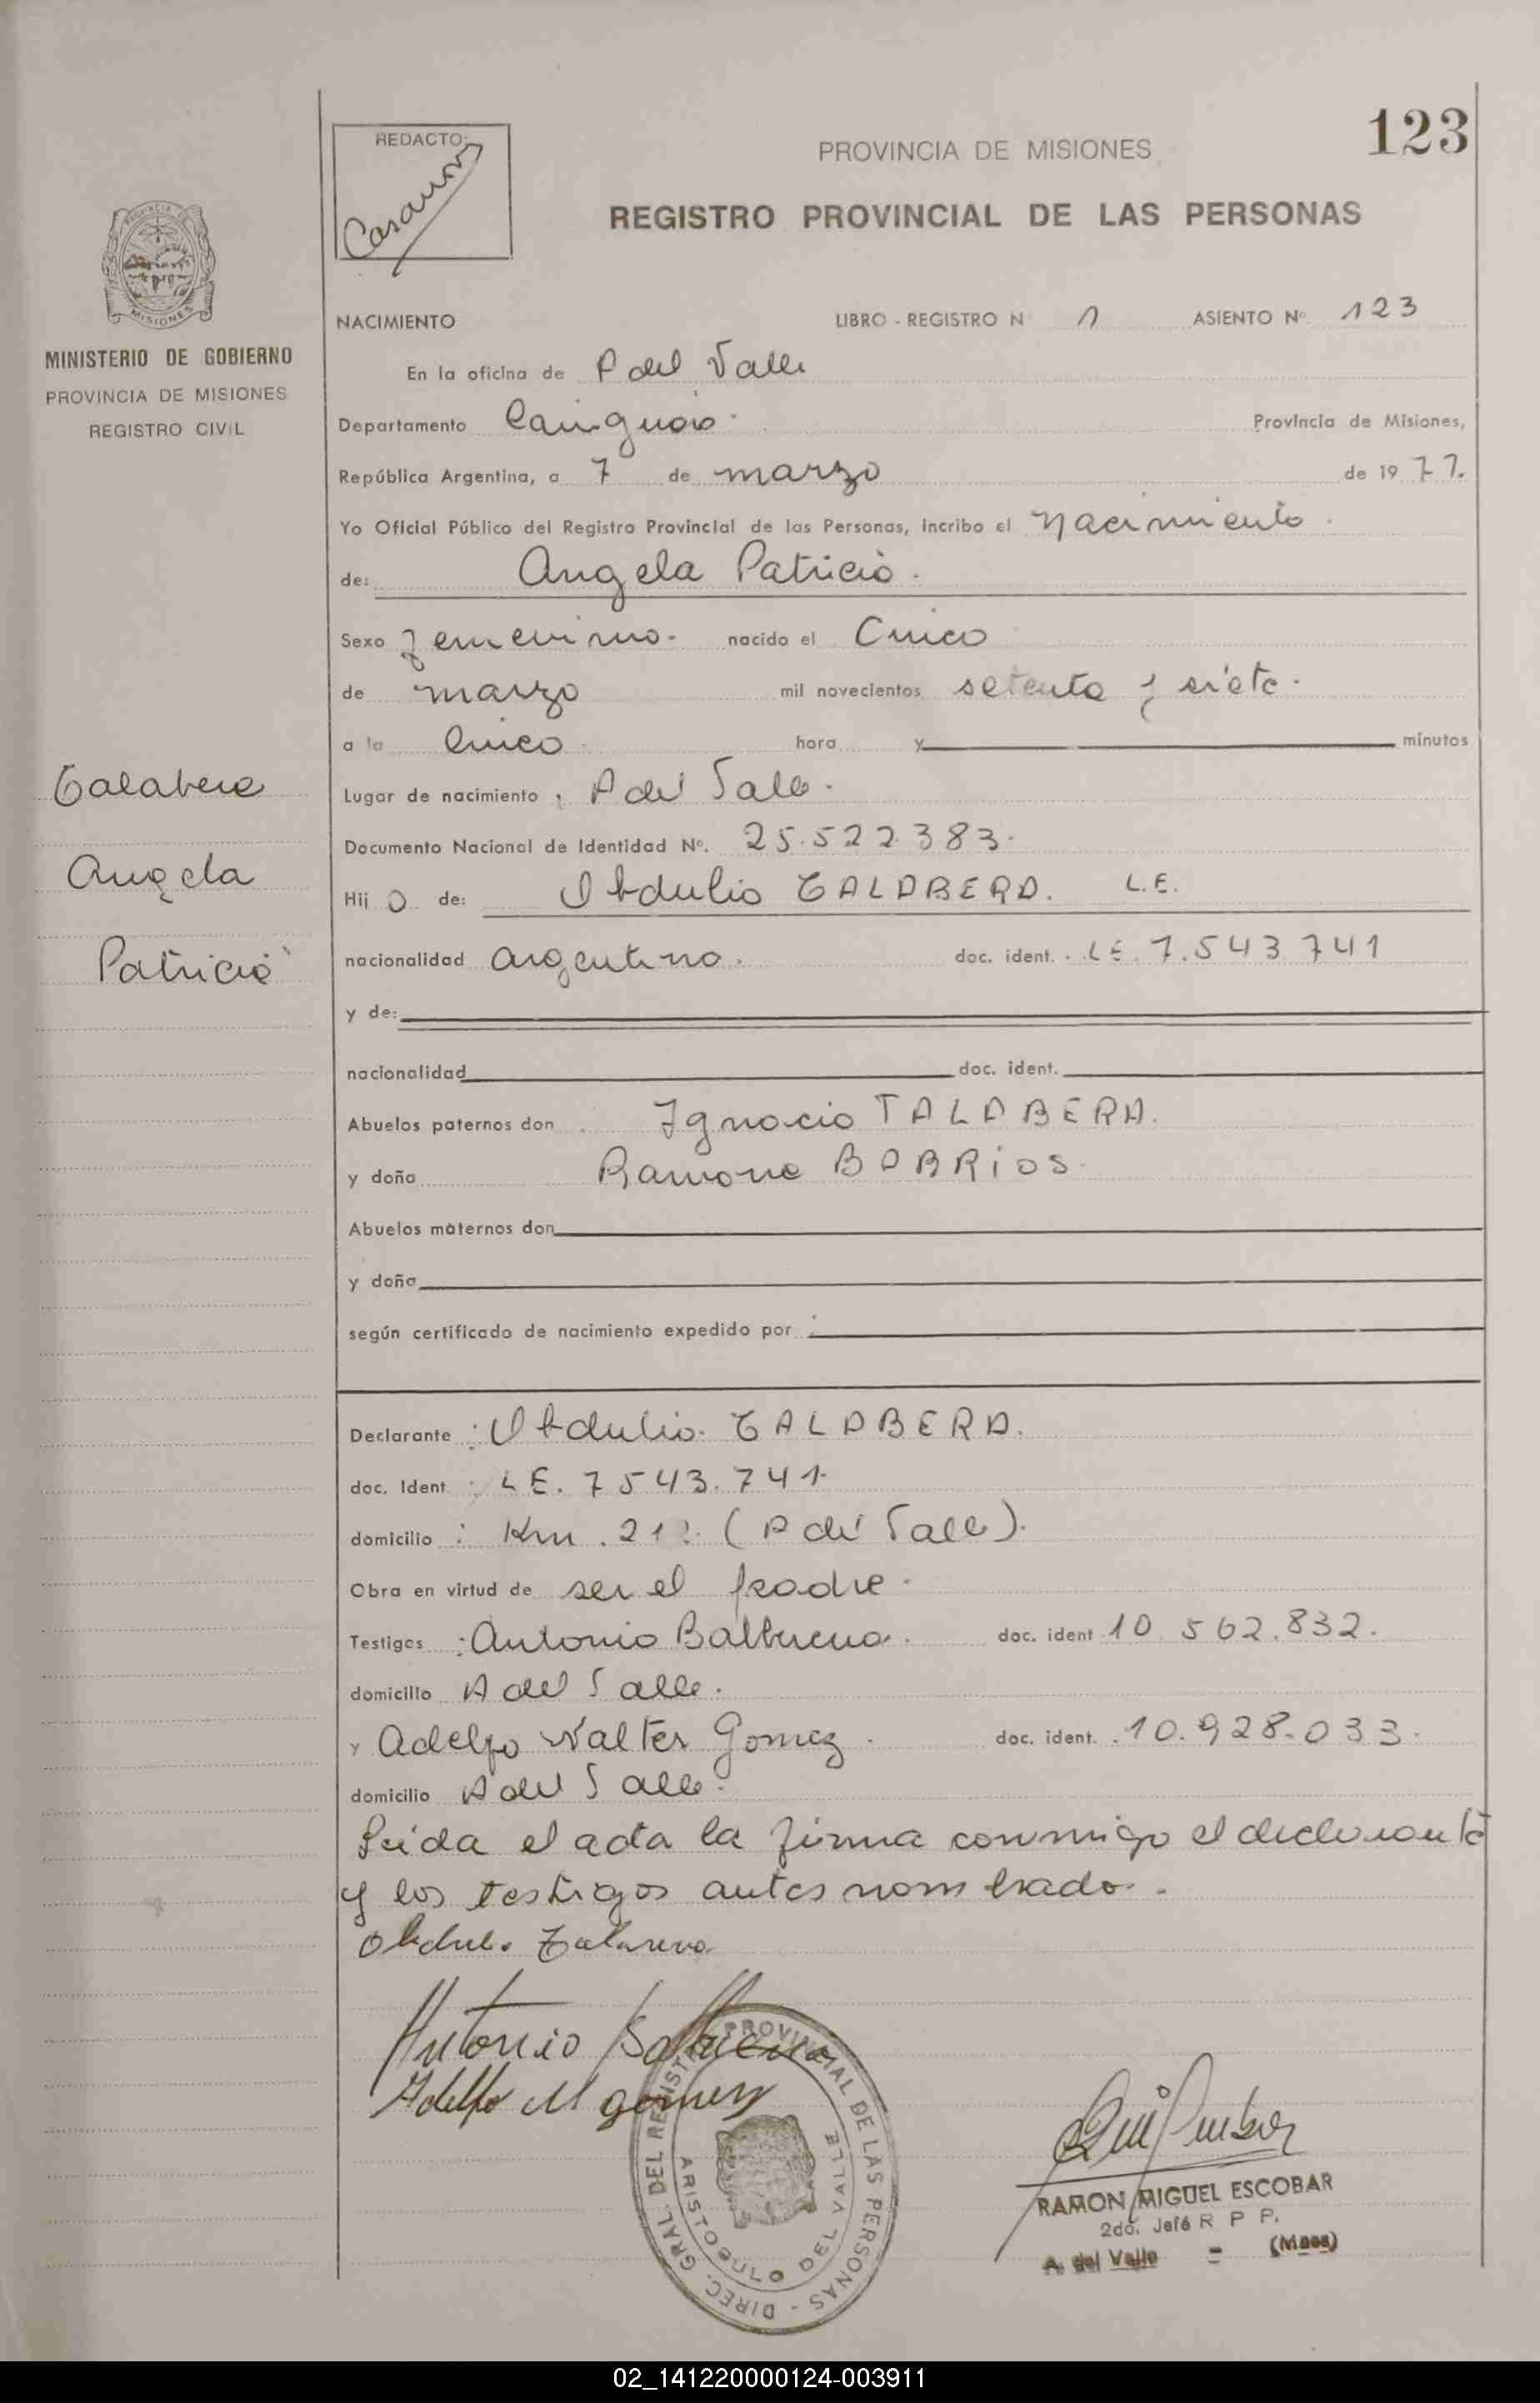 123
REDACTO:
Casanova
PROVINCIA DE MISIONES
REGISTRO PROVINCIAL DE LAS PERSONAS
MISIONES
MINISTERIO DE GOBIERNO
PROVINCIA DE MISIONES
REGISTRO CIVIL
NACIMIENTO LIBRO - REGISTRO N 1 ASIENTO Nº 123
En la oficina de A del Valle
Departamento Cainguás. Provincia de Misiones,
República Argentina, a 7 de marzo de 1977.
Yo Oficial Público del Registro Provincial de las Personas, incribo el nacimiento.
de: Angela Patricia.
Sexo femenino. nacido el Cinco
de marzo mil novecientos setenta y siete.
a la Cinco hora y minutos
Lugar de nacimiento : A del Valle.
Documento Nacional de Identidad Nº. 25.522.383.
Hij a de: Obdulio TALABERA. L.E.
nacionalidad argentina. doc. ident. LE. 7.543.741
y de:
nacionalidad doc. ident.
Abuelos paternos don Ignacio TALABERA.
y doña Ramona BARRIOS.
Abuelos maternos don
y doña
según certificado de nacimiento expedido por
Talabera
Angela
Patricia
Declarante : Obdulio. TALABERA.
doc. Ident : LE. 7543.741.
domicilio : Km. 212. (A del Valle).
Obra en virtud de ser el padre.
Testigos : Antonio Balbuena. doc. ident 10.562.832.
domicilio A del Valle.
y Adelfo Walter Gomez. doc. ident. 10.928.033.
domicilio A del Valle.
Leida el acta la firma conmigo el declarante
y los testigos antes nombrado.
Obdulio Talavera
Antonio Balbuena
Adelfo W gomez
DIREC. GRAL. DEL REGISTRO PROVINCIAL DE LAS PERSONAS -
ARISTOBULO DEL VALLE
RAMON MIGUEL ESCOBAR
2do. Jefe R P P.
A. del Valle - (Mnes)
02_141220000124-003911